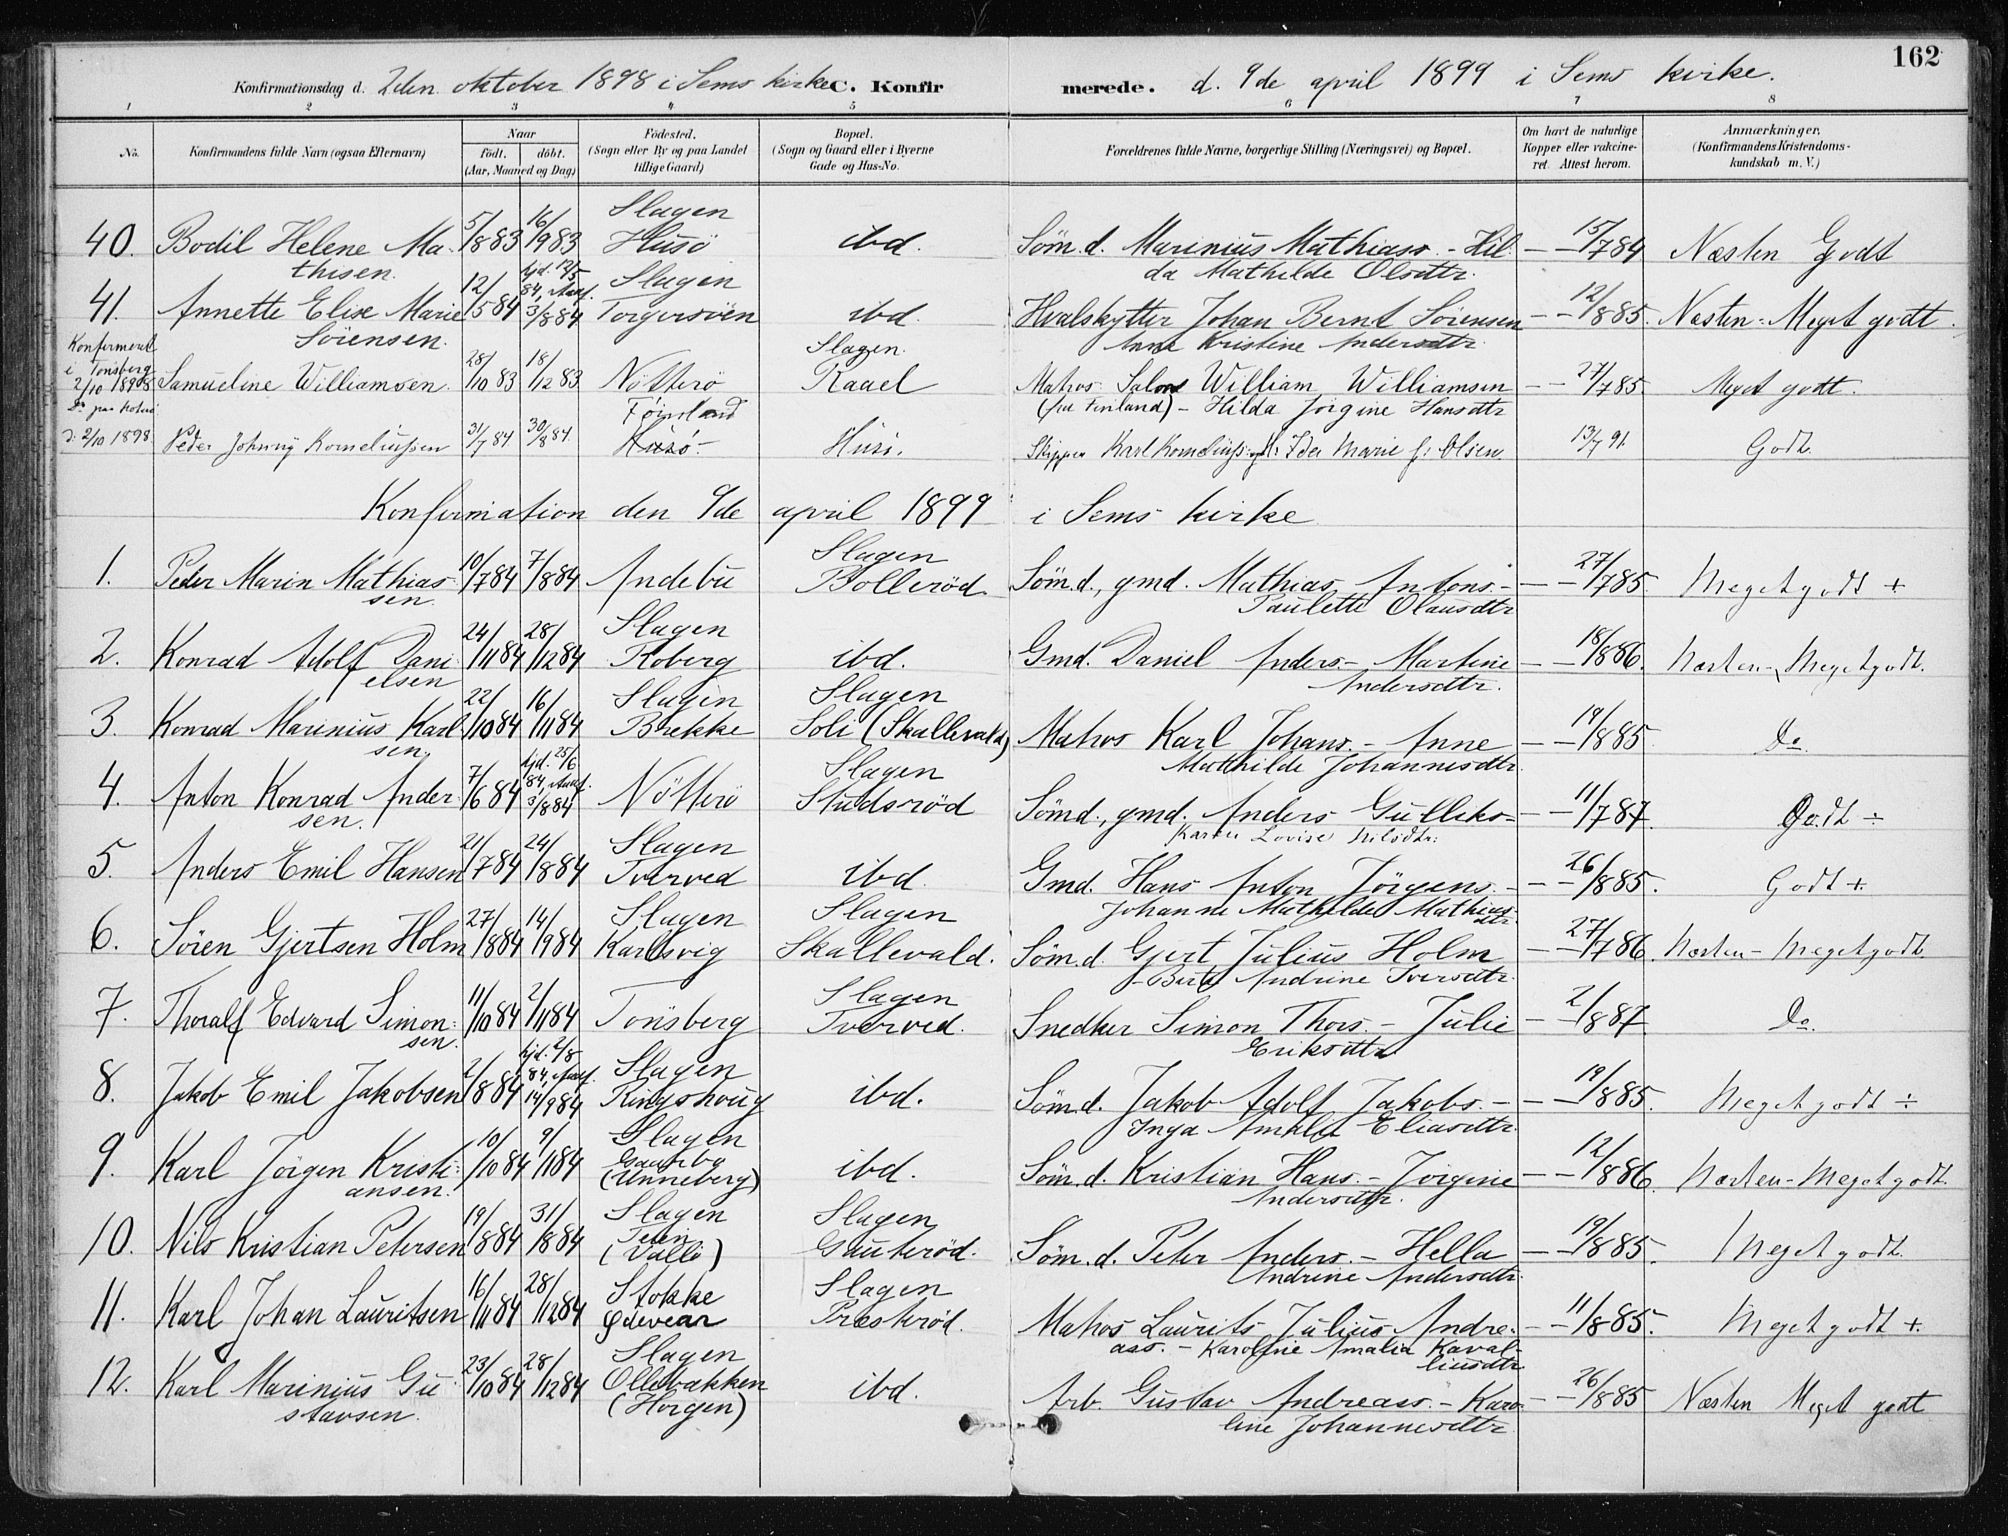 162
Konfirmationsdag d. 2den oktober 1898 i Sems kirke C. Konfirmerede. d. 9de april 1899 i Sems kirke.
1 2 3 4 5 6 7 8
No. Konfirmandens fulde Navn (ogsaa Efternavn) Naar født. døbt. (Aar, Maaned og Dag) Fødested. (Sogn eller By og paa Landet tillige Gaard) Bopæl. (Sogn og Gaard eller i Byerne Gade og Hus-No. Forældrenes fulde Navne, borgerlige Stilling (Næringsvei) og Bopæl. Om havt de naturlige Kopper eller vakcineret. Attest herom. Anmærkninger. (Konfirmandens Kristendomskundskab m. V.)
40. Bodil Helene Mathisen. 5/8 83 16/9 83 Slagen Husö ibd. Söm.d. Marinius Mathiass. - Hilda Mathilde Olsdttr. — 15/7 84 Næsten Godt
41. Annette Elise Marie Sörensen. 12/5 84 hjd. 12/5 84, 3/8 84 Slagen Torgersöen ibd Hvalskytter Johan Bernt Sörensen Anne Kristine Andersdttr. — 12/8 85. Næsten-Meget godt.
Konfirmeret i Tönsberg 2/10 1898 Samueline Williamsen. 28/10 83 18/12 83 Nötterö Slagen. Raael Matros William Williamsen (fra Finland) - Hilda Jörgine Hansdttr — 27/7 85. Meget godt.
2/10 1898. Peder Johnny Korneliussen 31/7 84 30/8 84. Föinland Husö - Husö. Skipper Karl Korneliuss: Ida Marie f: Olsen. 13/7 91. Godt.
Konfirmation den 9de april 1899 i Sems kirke
1. Peder Marin Mathiassen. 10/7 84 7/8 84 Andebu Slagen Bolleröd. Söm.d., gmd. Mathias Antons. - Paulette Olausdttr — 27/7 85. Meget godt +
2. Konrad Adolf Danielsen 24/11 84 28/12 84 Slagen Roberg ibd. Gmd. Daniel Anders. - Martine Andersdttr. — 18/8 86. Næsten-Meget godt.
3. Konrad Marinius Karlsen. 22/10 84 16/11 84 Slagen Brekke Slagen Soli (Skallevald) Matros Karl Johans. - Anne Mathilde Johannesdttr. — 19/8 85. Do.
4. Anton Konrad Andersen. 7/6 84 hjd. 25/6 84, 3/8 84 Nötterö Slagen Studsröd Söm.d., gmd. Anders Gulliks- Karen Lovise Nilsdtr: — 11/7 87. Godt ÷
5. Anders Emil Hansen 21/7 84 24/8 84 Slagen Tverved ibd Gmd. Hans Anton Jörgens. - Johanne Mathilde Mathiasdttr. — 26/8 85. Godt +
6. Sören Gjertsen Holm 27/8 84 14/9 84 Slagen Karlsvig Slagen Skallevald. Söm.d. Gjert Julius Holm - Berte Andrine Iversdttr. — 27/7 86. Næsten-Meget godt.
7. Thoralf Edvard Simonsen. 11/10 84 2/11 84 Tönsberg Slagen Tverved. Snedker Simon Thors. - Julie Eriksdttr — 2/8 87. Do.
8. Jakob Emil Jakobsen 2/8 84 hjd. 2/8 84, 14/9 84 Slagen Ringshoug ibd. Söm.d. Jakob Adolf Jakobs. - Inga Amalie Eliasdttr. — 19/8 85. Meget godt ÷
9. Karl Jörgen Kristiansen. 10/10 84 9/11 84 Slagen Gauterbo (Unneberg) ibd. Söm.d. Kristian Hans. - Jörgine Andersdttr. — 12/8 86. Næsten-Meget godt.
10. Nils Kristian Petersen 19/8 84 31/8 84 Slagen Teien (Valle) Slagen Gauteröd. Söm.d. Peter Anders. - Hella Andrine Andersdttr. — 19/8 85. Meget godt.
11. Karl Johan Lauritsen 16/11 84 28/12 84 Stokke Slagen Presteröd. Matros Laurits Julius Andreass. - Karoline Amalia Kavalliusdttr. — 11/8 85. Meget godt +.
12. Karl Marinius Gustavsen. 23/10 84 28/12 84 Slagen Ollebakken (Horgen) ibd. Arb. Gustav Andreass. - Karoline Johannesdttr. — 26/8 85 Næsten Meget godt